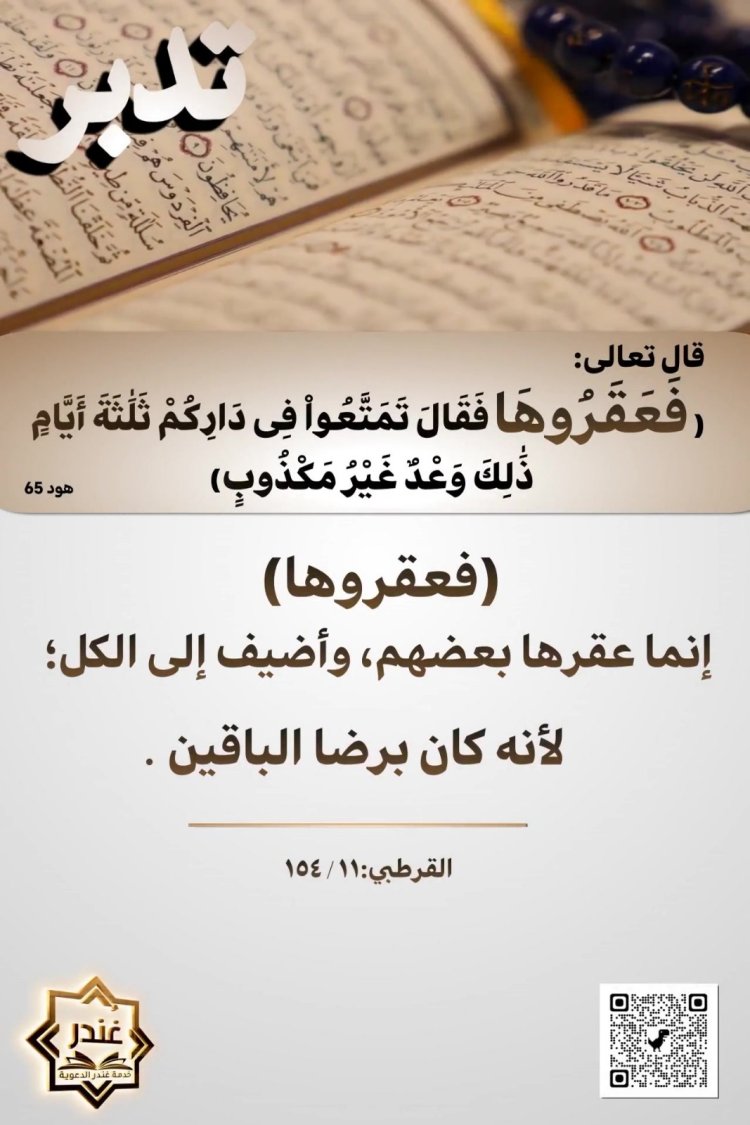 تدبر
قال تعالى:
(فَعَقَرُوهَا فَقَالَ تَمَتَّعُوا۟ فِى دَارِكُمْ ثَلَٰثَةَ أَيَّامٍ
ذَٰلِكَ وَعْدٌ غَيْرُ مَكْذُوبٍ)
هود 65
(فعقروها)
إنما عقرها بعضهم، وأضيف إلى الكل؛
لأنه كان برضا الباقين .
القرطبي:١١/ ١٥٤
غُندر
خدمة غندر الدعوية